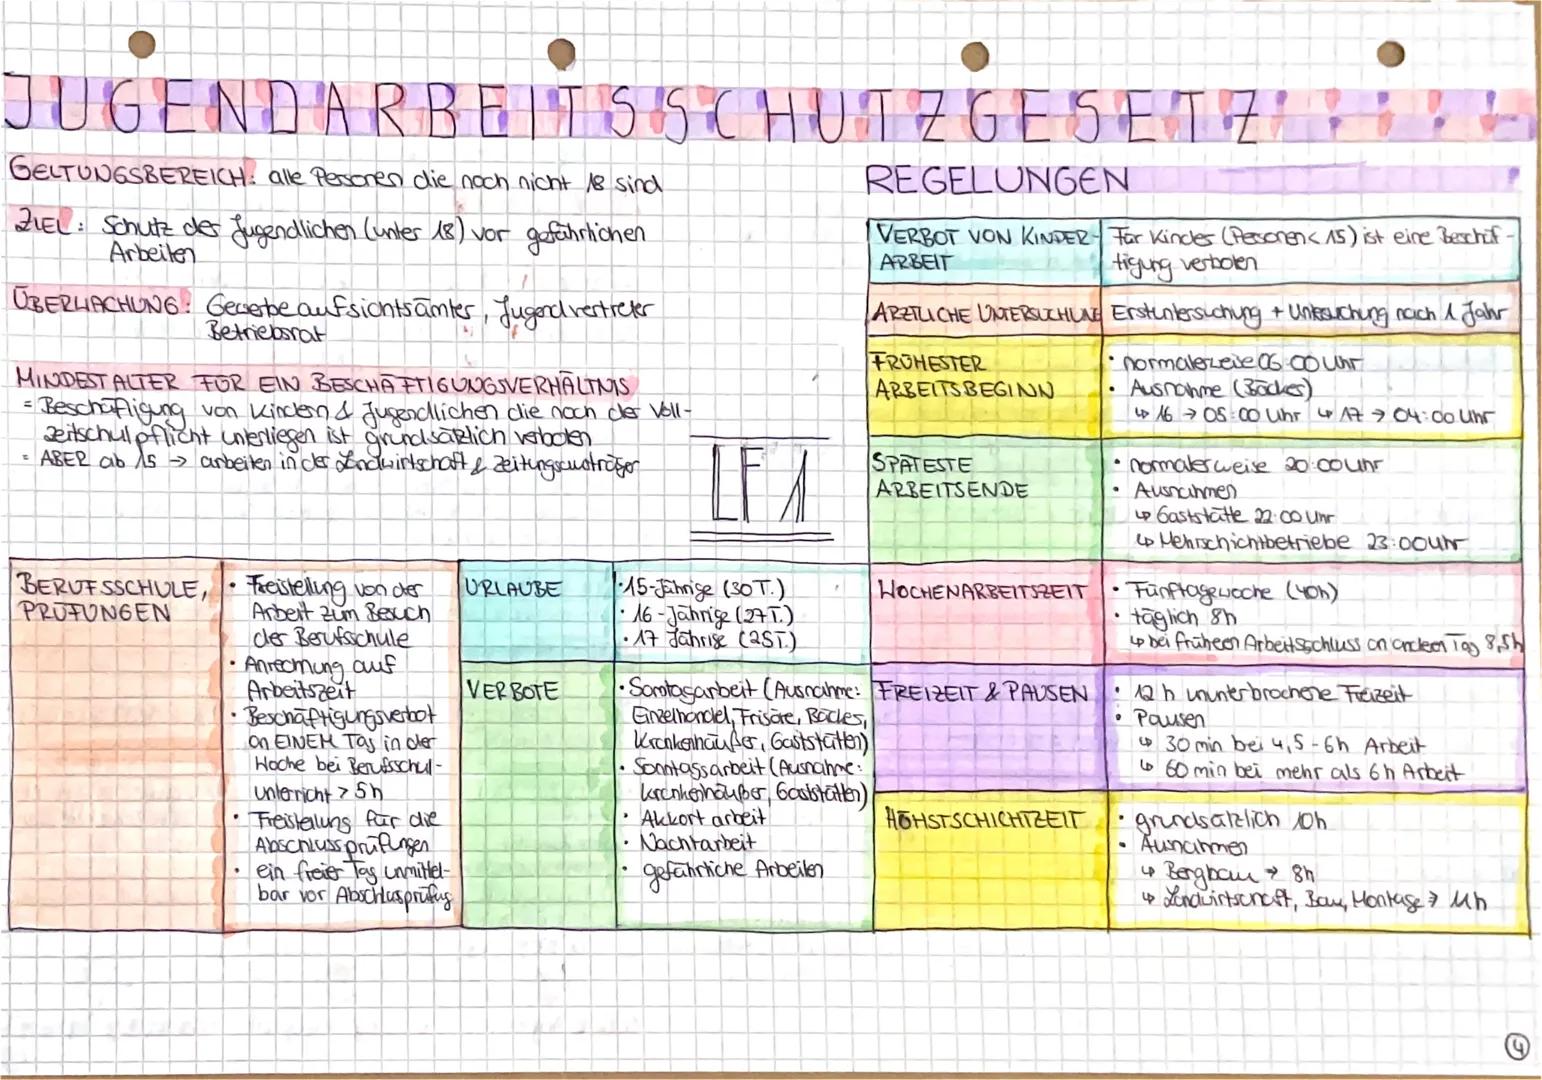 JUGENDARBEITSSCHUTZGESETZ
GELTUNGSBEREICH: alle Personen die noch nicht 18 sind
ZIEL: Schutz der Jugendlichen (unter 18) vor gefährlichen
Arbeiten
ÜBERWACHUNG: Gewerbeaufsichtsämter, Jugendvertreter
Betriebsrat
MINDESTALTER FÜR EIN BESCHÄFTIGUNGSVERHÄLTNIS
= Beschäftigung von Kindern & Jugendlichen die noch der Voll-
zeitschulpflicht unterliegen ist grundsätzlich verboten
= ABER ab 15 → arbeiten in der Landwirtschaft & Zeitungsausträger
LF1
REGELUNGEN
VERBOT VON KINDER-
ARBEIT
Für Kinder (Personen < 15) ist eine Beschäf-
tigung verboten
ÄRZTLICHE UNTERSUCHUNG
Erstuntersuchung + Untersuchung nach 1 Jahr
FRÜHESTER
ARBEITSBEGINN
• normalerweise 06:00 Uhr
• Ausnahme (Bäcker)
↳ 16 → 05:00 Uhr ↳ 17 → 04:00 Uhr
SPÄTESTE
ARBEITSENDE
• normalerweise 20:00 Uhr
• Ausnahmen
↳ Gaststätte 22:00 Uhr
↳ Mehrschichtbetriebe 23:00 Uhr
BERUFSSCHULE,
PRÜFUNGEN
• Freistellung von der
Arbeit zum Besuch
der Berufsschule
• Anrechnung auf
Arbeitszeit
• Beschäftigungsverbot
an EINEM Tag in der
Woche bei Berufsschul-
unterricht > 5h
• Freistellung für die
Abschlussprüfungen
• ein freier Tag unmittel-
bar vor Abschlusprüfug
URLAUBE
• 15-Jährige (30T.)
• 16-Jährige (27T.)
• 17 Jährige (25T.)
VERBOTE
• Samstagsarbeit (Ausnahme:
Einzelhandel, Frisöre, Bäcker,
Krankenhäußer, Gaststätten)
• Sonntagsarbeit (Ausnahme:
Krankenhäußer, Gaststätten)
• Akkort arbeit
• Nachtarbeit
• gefährliche Arbeiten
WOCHENARBEITSZEIT
• Fünftagewoche (40h)
• täglich 8h
↳ bei früheren Arbeitsschluss an anderen Tag 8,5h
FREIZEIT & PAUSEN
• 12 h ununterbrochene Freizeit
• Pausen
↳ 30 min bei 4,5-6h Arbeit
↳ 60 min bei mehr als 6h Arbeit
HÖHSTSCHICHTZEIT
• grundsätzlich 10h
• Ausnahmen
↳ Bergbau → 8h
↳ Landwirtschaft, Bau, Montage → 11h
4